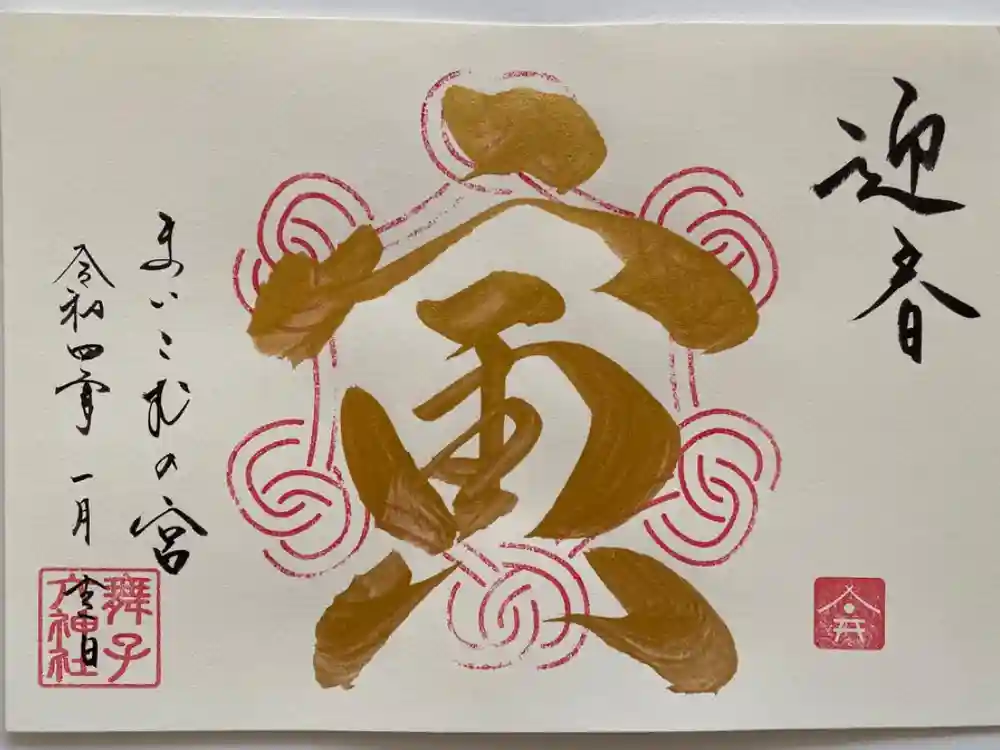 迎春
寅
まいこむの宮
令和四年 一月 吉日
舞子
六神社